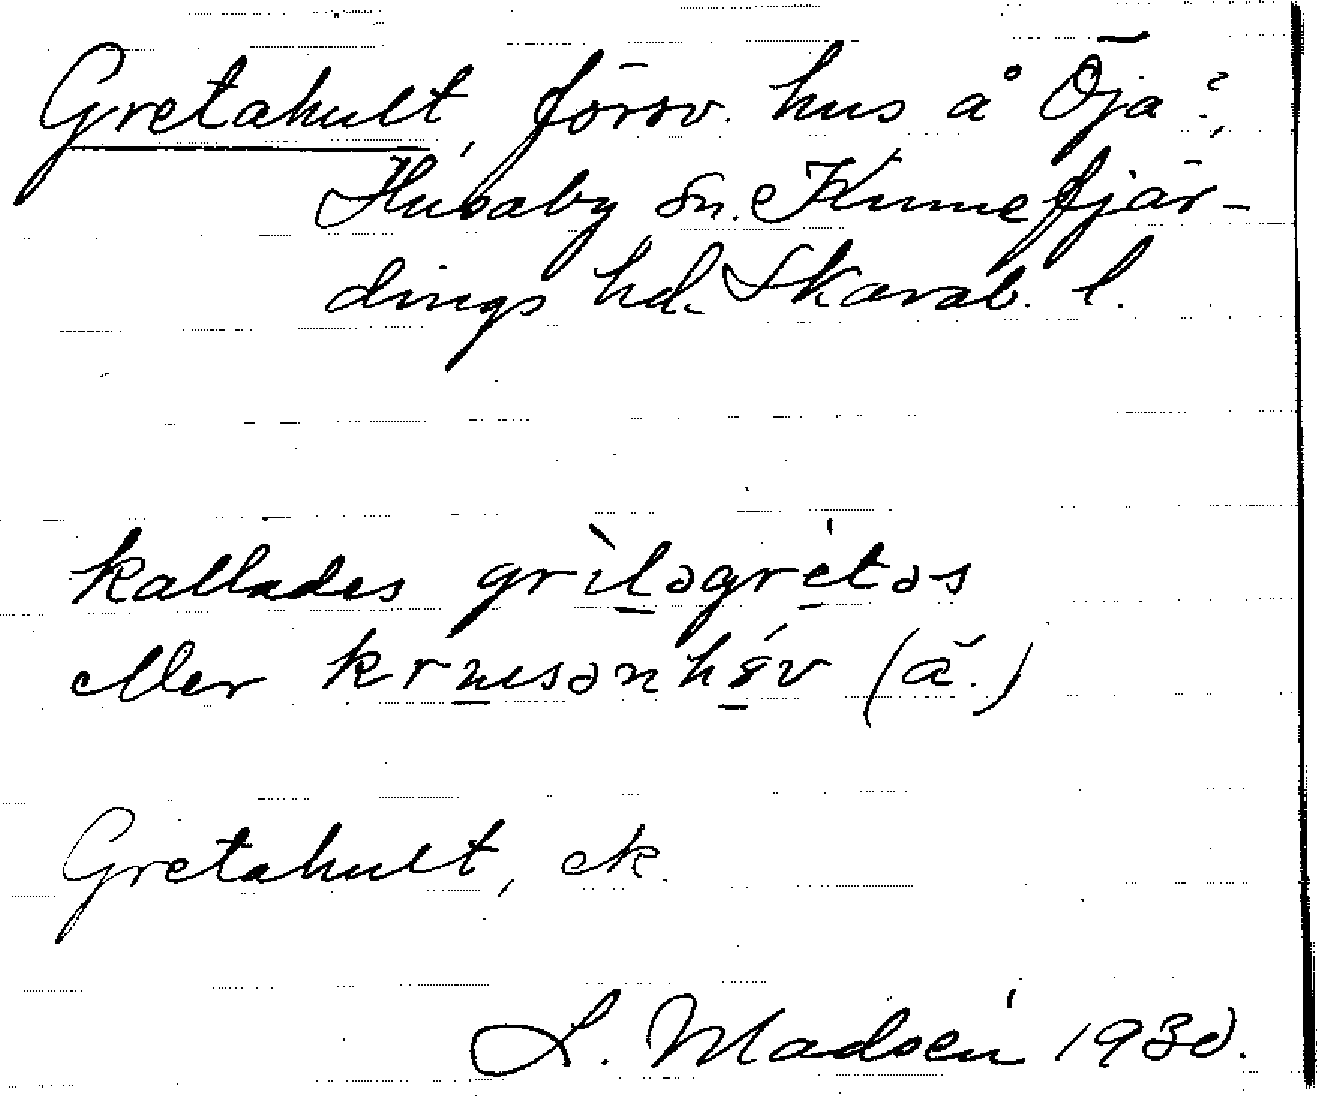 Gretahult, försv. hus å Öja?,
Husaby sn. Kinnefjär-
dings hd. Skarab. l.
kallades grìləgrétəs
eller krusənh (ä.)
Gretahult, ek.
L. Madsén 1930.